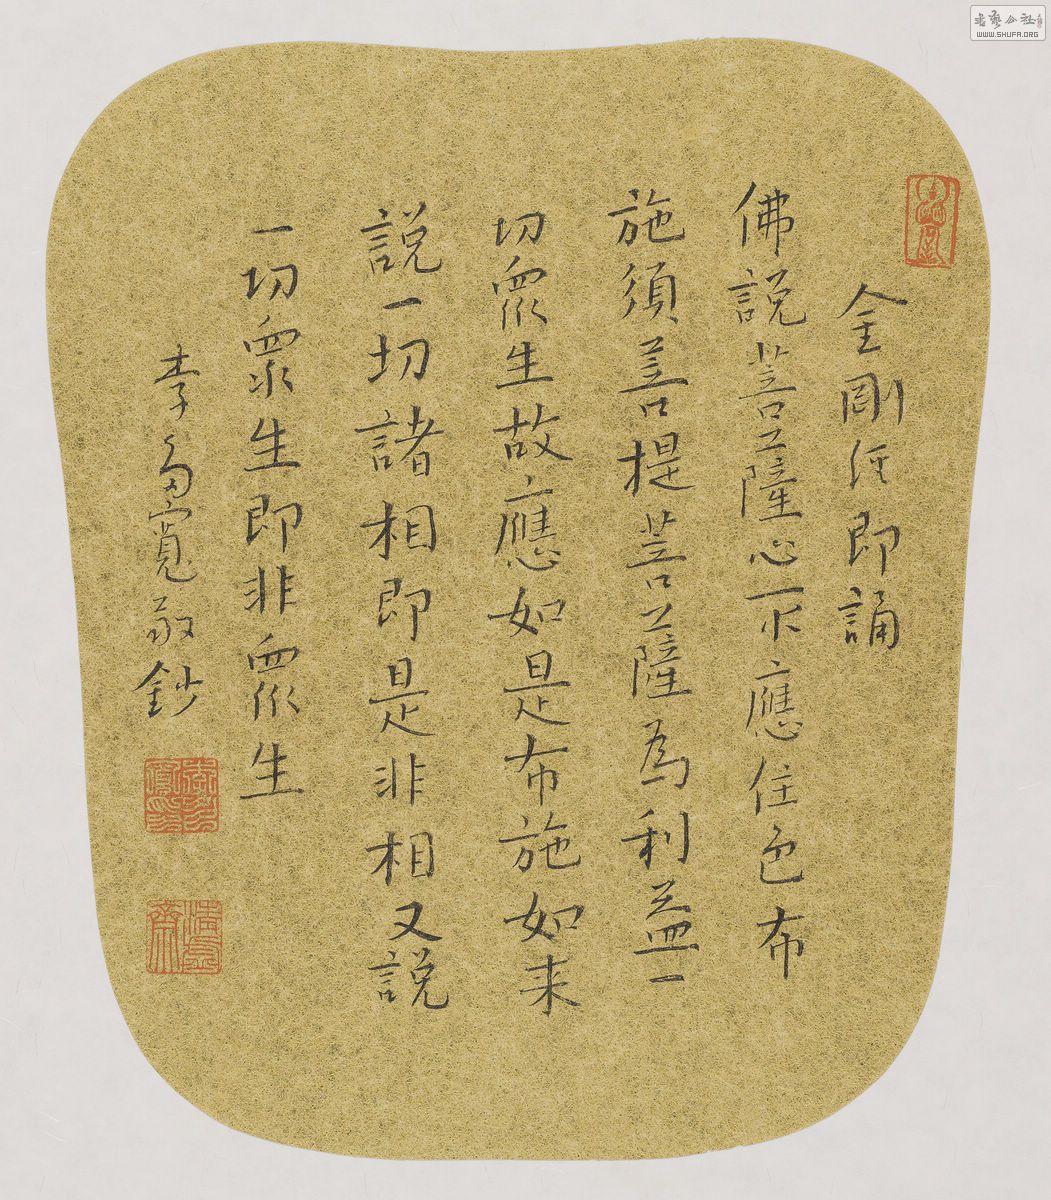 金剛经即誦
佛説菩薩心不應住色布
施須菩提菩薩為利益一
切眾生故應如是布施如来
説一切諸相即是非相又説
一切眾生即非眾生
李寬敬鈔
書藝公社
WWW.SHUFA.ORG